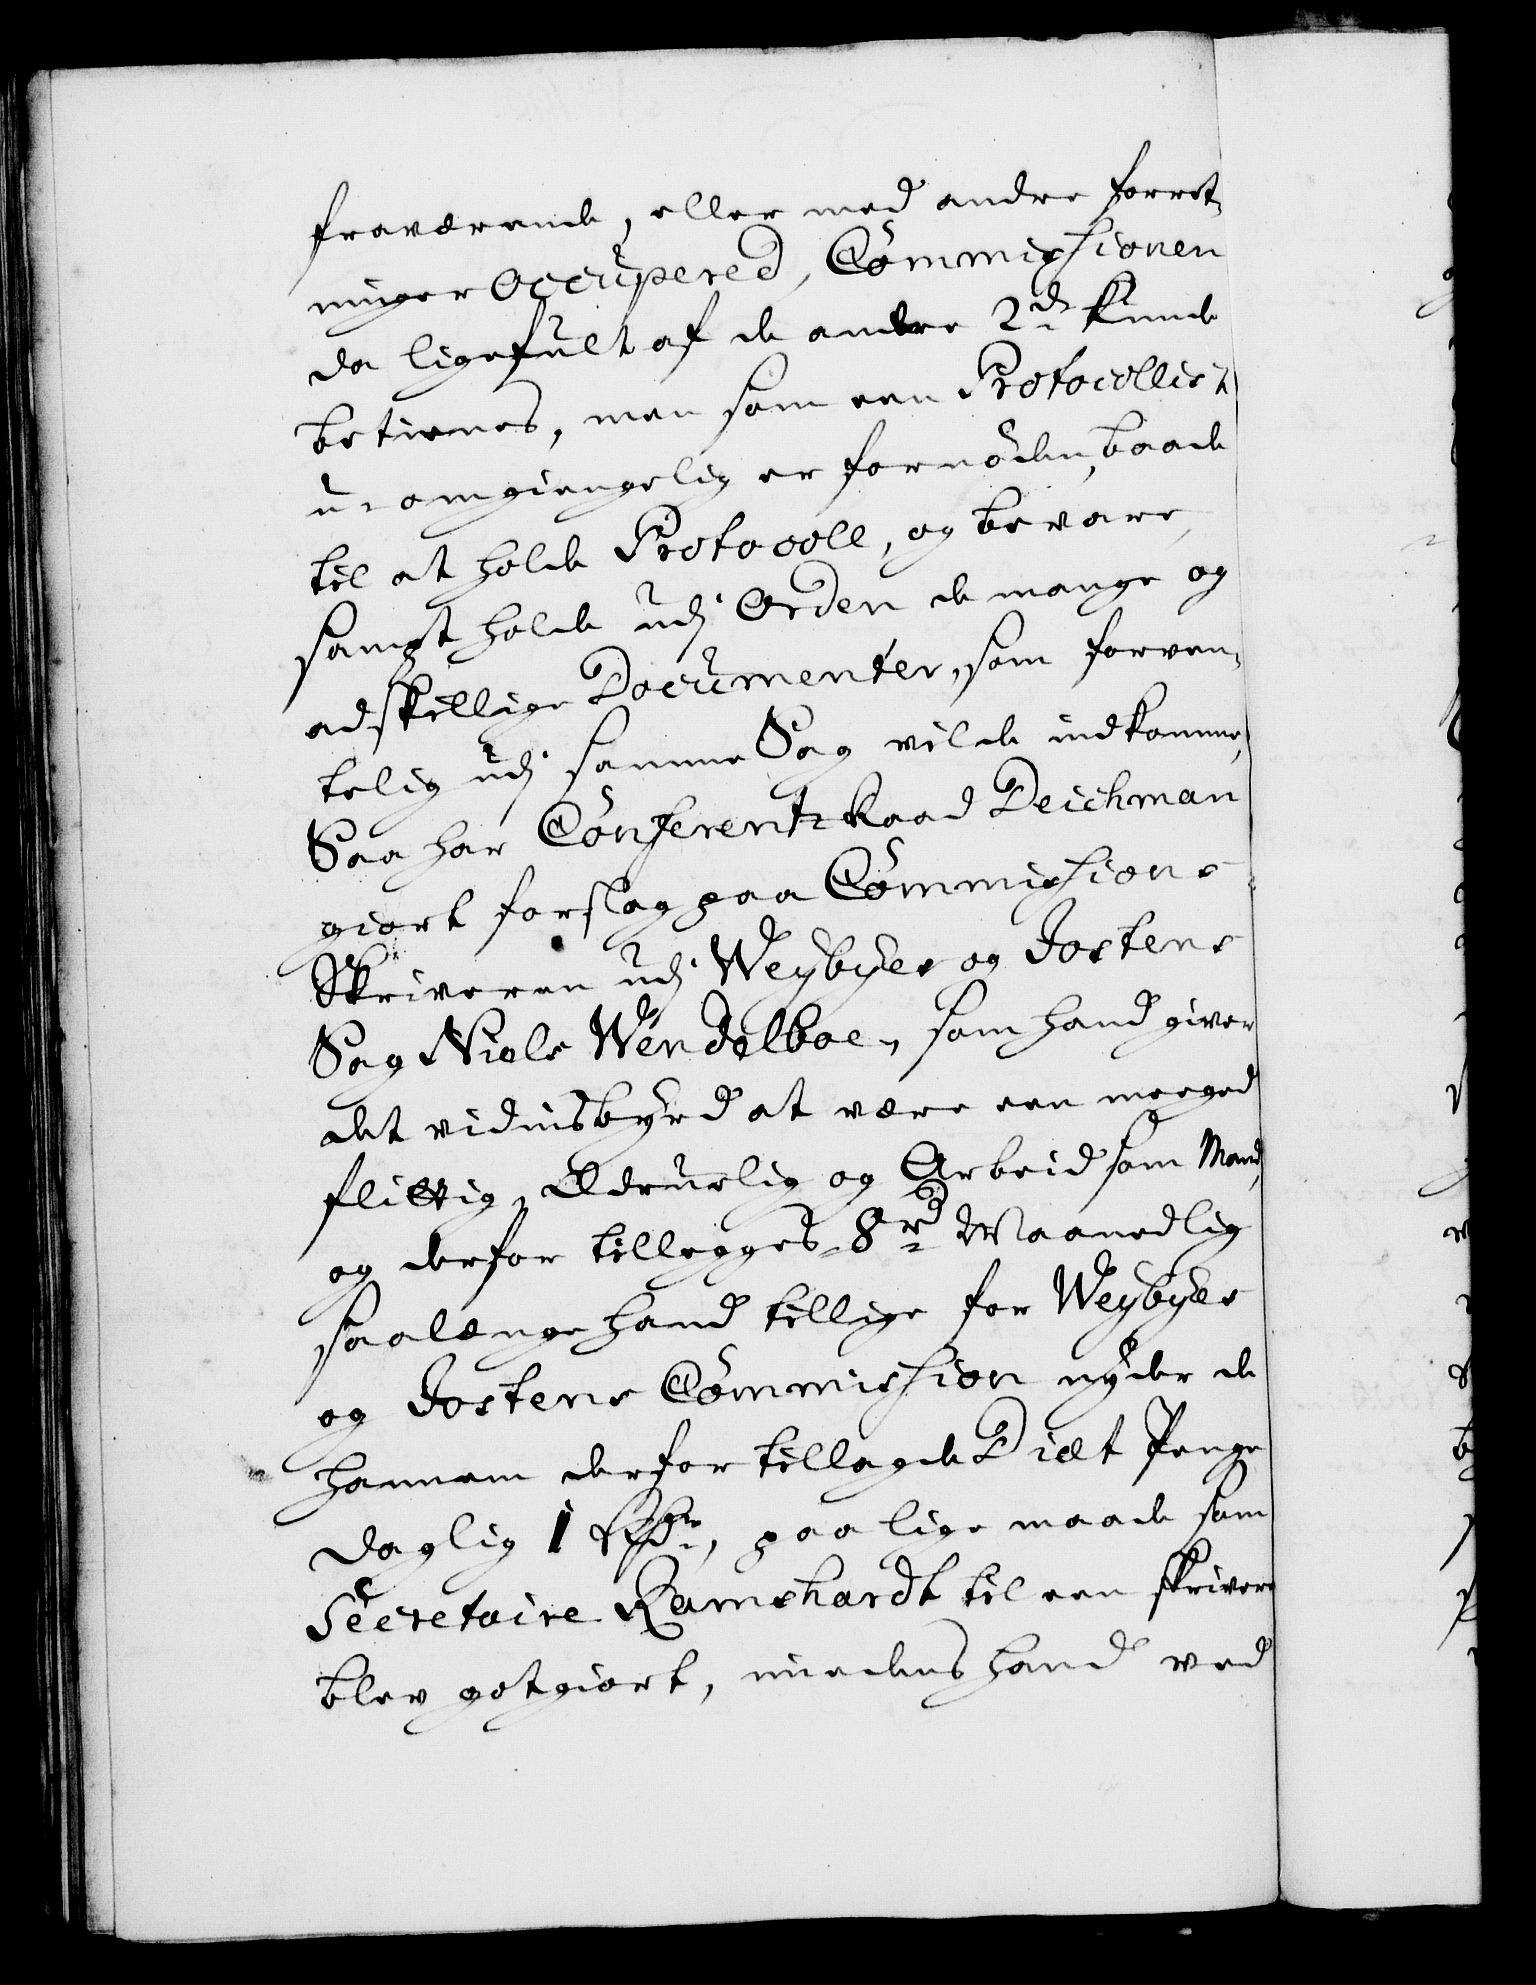 fraværende, eller med andre forret-
ninger Occupered, Commissionen
da ligefult af de andre 2de kunde
betienes, men som een Protocollist
u-omgiengelig er fornöden, baade
til at holde Protocoll, og bevare,
sampt holde udj Orden de mange og
adskillige Documenter, som forven-
telig udj samme Sag vilde indkomme,
Saa har Conferentz Raad Deichman
giort forslag paa Commissions-
Skriveren udj Weybyes og Jostens
Sag Niels Wendelboe, som hand giver
det vidnisbyrd at være een meeged
flittig, Ædruelig og Arbeidsom Mand,
og derfor tillegges 8 rd Maanedlig
saalænge hand tillige for Weybyes
og Jostens Commission nyder de
hannem derfor tillagde Diæt Penge
daglig 1 Rdr, paa lige maade som
Secretaire Ramshardt til een skriver
blev gotgiort, imedens hand ved